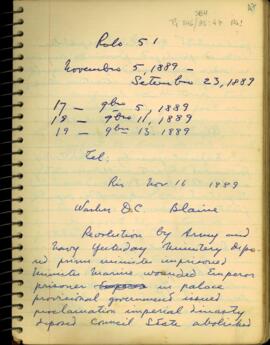 Rolo 51
Novembro 5, 1889 -
Setembro 23, 1889
17 - 9bro 5, 1889
18 - 9bro 11, 1889
19 - 9bro 13. 1889
Tel:
Rio Nov 16 1889
Washn D.C Blaine
Revolution by Army and
Navy Yesterday Ministry depo
sed prime minister imprisoned
minister Marine wounded Emperor
prisoner in palace
provisional government issued
proclamation imperial dynasty
deposed Council State abolished